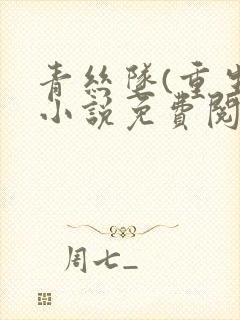 青丝墜(重生
小說免費閱
周七_